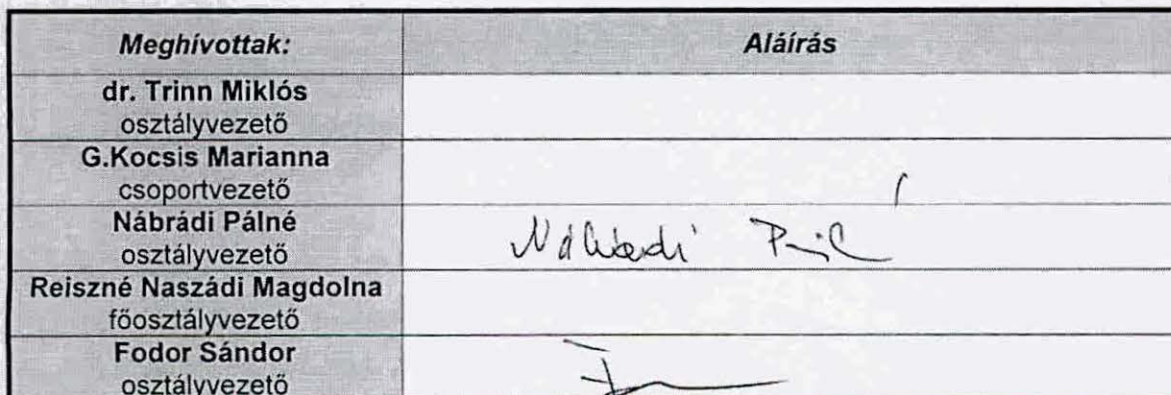 Meghívottak: Aláírás
dr. Trinn Miklós
osztályvezető
G.Kocsis Marianna
csoportvezető
Nábrádi Pálné
osztályvezető
Nábrádi Pálné
Reiszné Naszádi Magdolna
főosztályvezető
Fodor Sándor
osztályvezető